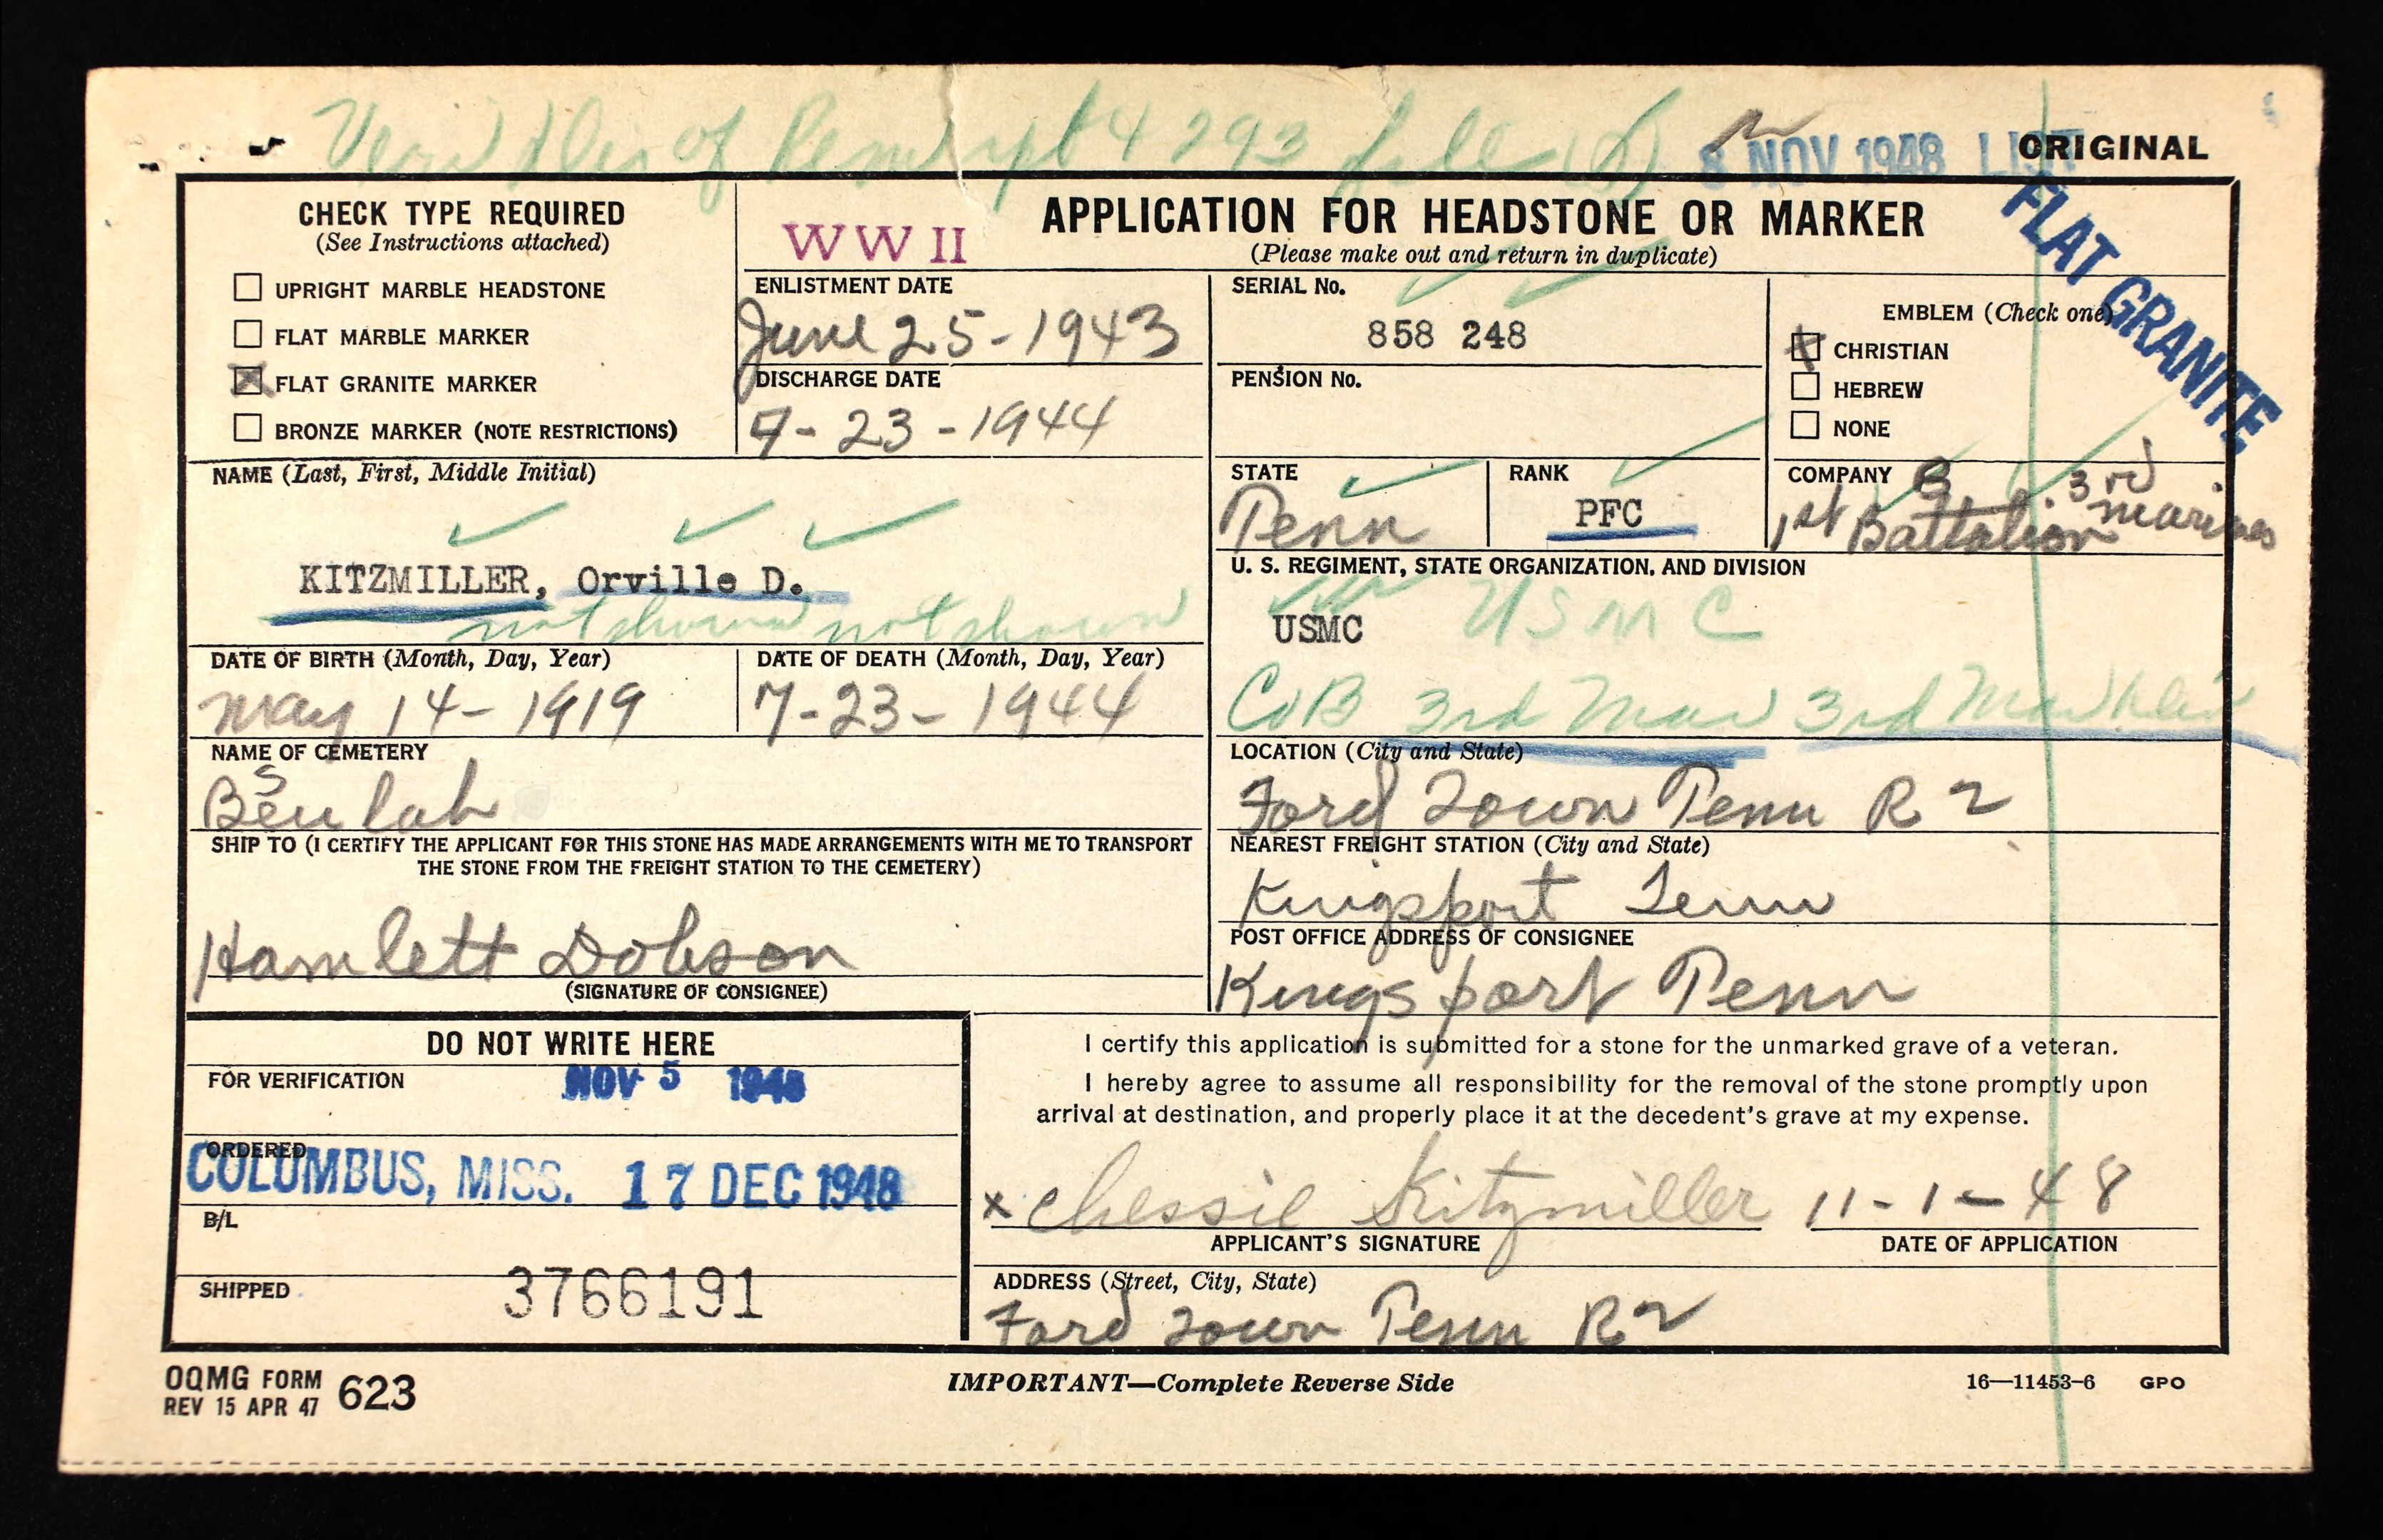 of 4293 file
8 NOV 1948 LIST
ORIGINAL
CHECK TYPE REQUIRED
(See Instructions attached)
UPRIGHT MARBLE HEADSTONE
FLAT MARBLE MARKER
X FLAT GRANITE MARKER
BRONZE MARKER (NOTE RESTRICTIONS)
WW II
APPLICATION FOR HEADSTONE OR MARKER
(Please make out and return in duplicate)
FLAT GRANITE
ENLISTMENT DATE
June 25-1943
DISCHARGE DATE
7-23-1944
SERIAL No.
858 248
PENSION No.
EMBLEM (Check one)
X CHRISTIAN
HEBREW
NONE
NAME (Last, First, Middle Initial)
KITZMILLER, Orville D.
not shown not shown
STATE
Tenn
RANK
PFC
COMPANY B
1st Battalion 3rd marines
U. S. REGIMENT, STATE ORGANIZATION, AND DIVISION
USMC USMC
Co B 3rd Mar 3rd Mar Div
DATE OF BIRTH (Month, Day, Year)
May 14-1919
DATE OF DEATH (Month, Day, Year)
7-23-1944
NAME OF CEMETERY
Beulah
LOCATION (City and State)
Ford Town Tenn R 2
SHIP TO (I CERTIFY THE APPLICANT FOR THIS STONE HAS MADE ARRANGEMENTS WITH ME TO TRANSPORT
THE STONE FROM THE FREIGHT STATION TO THE CEMETERY)
Hamlett Dobson
(SIGNATURE OF CONSIGNEE)
NEAREST FREIGHT STATION (City and State)
Kingsport Tenn
POST OFFICE ADDRESS OF CONSIGNEE
Kingsport Tenn
DO NOT WRITE HERE
FOR VERIFICATION
NOV 5 1948
ORDERED
COLUMBUS, MISS. 17 DEC 1948
B/L
SHIPPED
3766191
I certify this application is submitted for a stone for the unmarked grave of a veteran.
I hereby agree to assume all responsibility for the removal of the stone promptly upon
arrival at destination, and properly place it at the decedent's grave at my expense.
x Chessie Kitzmiller 11-1-48
APPLICANT'S SIGNATURE
DATE OF APPLICATION
ADDRESS (Street, City, State)
Ford Town Tenn R2
OQMG FORM 623
REV 15 APR 47
IMPORTANT—Complete Reverse Side
16—11453-6 GPO